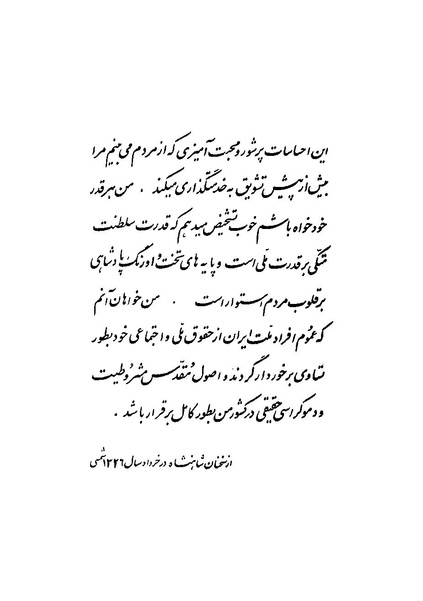 این احساسات پرشور و محبت آمیزی که از مردم می بینم مرا
بیش از پیش تشویق به خدمتگذاری میکند . من هر قدر
خودخواه باشم خوب تشخیص میدهم که قدرت سلطنت
متکی بر قدرت ملی است و پایه های تخت و اورنگ پادشاهی
بر قلوب مردم استوار است . من خواهان آنم
که عموم افراد ملت ایران از حقوق ملی و اجتماعی خود بطور
تساوی برخوردار گردند و اصول مقدس مشروطیت
و دموکراسی حقیقی در کشور من بطور کامل برقرار باشد .
از سخنان شاهنشاه در خرداد سال ۱۳۲۶ شمسی